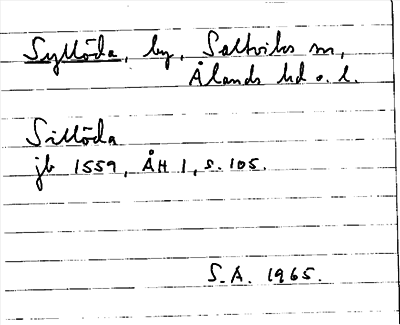 Syllöda, by, Saltviks sn,
Ålands hd o. l.
Sillöda
jb 1559, ÅH 1, s. 105.
S. A. 1965.